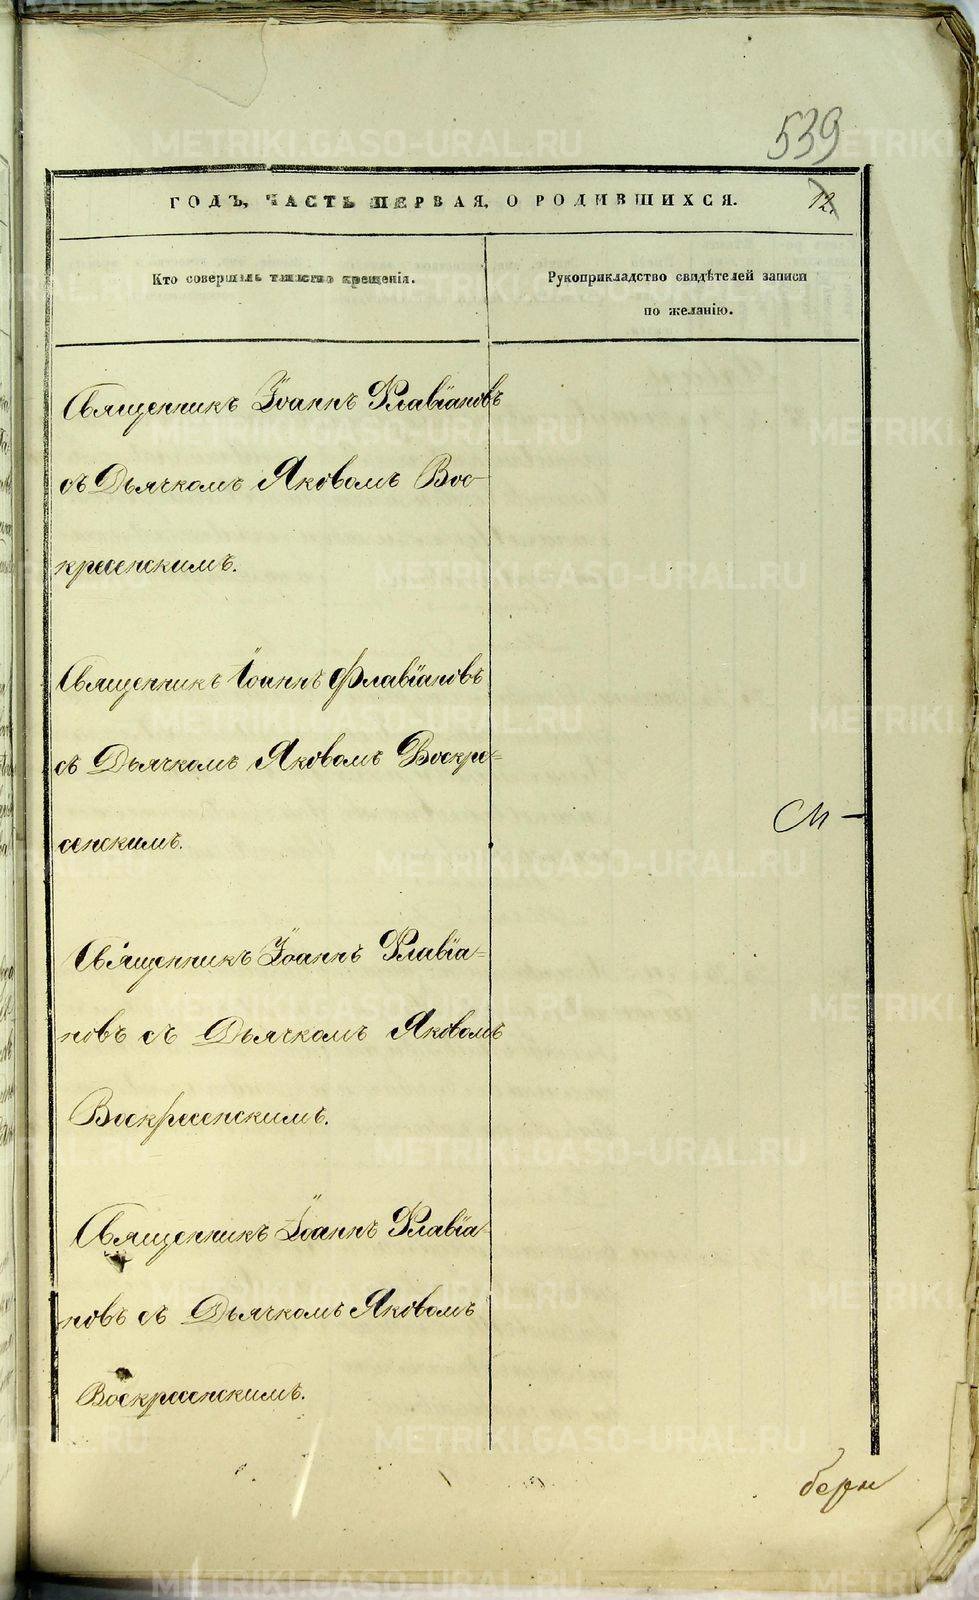 539
ГОДЪ, ЧАСТЬ ПЕРВАЯ, О РОДИВШИХСЯ. 12.
Кто совершалъ таинство крещенія.
Рукоприкладство свидѣтелей записи
по желанію.
Священникъ Іоаннъ Флавіановъ
съ Дьячкомъ Яковомъ Вос-
кресенскимъ.
Священникъ Іоаннъ Флавіановъ
съ Дьячкомъ Яковомъ Воскре=
сенскимъ.
Священникъ Іоаннъ Флавіа=
новъ съ Дьячкомъ Яковомъ
Воскресенскимъ.
Священникъ Іоаннъ Флавіа-
новъ съ Дьячкомъ Яковомъ
Воскресенскимъ.
METRIKI.GASO-URAL.RU